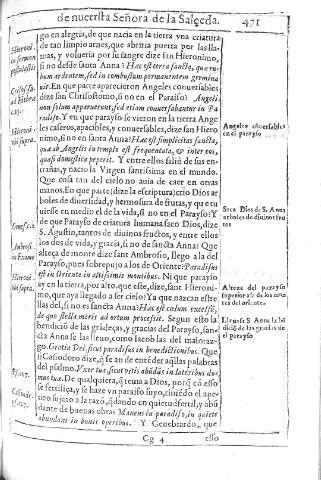 de nuestra Señora de la Salceda. 471
go en alegria, de que nacia en la tierra vna criatura
de tan limpio araes, que abriria puerta por las lla-
mas, y volueria por su sangre dize san Hieronimo,
si no desde santa Anna? Hæc est terra sancta, quæ ru-
bum ardentem, sed in combustum permanentem germina
uit. En que parte aparecieron Angeles conuersables,
dize san Chrisostomo, si no en el Paraiso? Angeli
non solum apparuerunt, sed etiam conuersabantur in Pa
radiso. Y en que parayso se vieron en la tierra Ange
les caseros, apacibles, y conuersables, dize san Hiero
nimo, si no en santa Anna? Hæc est simplicitas sancta,
quæ ab Angelis in templo est frequentata, & inter eos,
quasi domestica peperit. Y entre ellos salió de sus en-
trañas, y nacio la Virgen santissima en el mundo.
Que cosa tan del cielo no auia de caer en otras
manos. En que parte (dize la escriptura) crió Dios ar
boles de diuersidad, y hermosura de frutas, y q̃ estu
uiesse en medio el de la vida, si no en el Parayso? Y
de que Parayso de criatura humana saco Dios, dize
S. Agustin, tantos de diuinos fructos, y entre ellos
los dos de vida, y gracia, si no de sancta Anna? Que
alteça de monte dize sant Ambrosio, llego a la del
Parayso, pues subrepujo a los de Oriente? Paradisus
est in Oriente in altissimis montibus. Ni que parayso
ay en la tierra, por alto, que este, dize sant Hieroni-
mo, que aya llegado a ser cielo? Ya que nazcan estre
llas del, si no es santa Anna? Hæc est cœlum excelsũ,
de quo stella maris ad ortum processit. Segun esto la
bendició de las gràdeças, y gracias del Parayso, san-
cta Anna se las lleuo, como Iacob las del mañoraz-
go. Gratia Dei sicut paradisus in benedictionibus. Que
si Casiodoro dize, q̃ se an de entẽder aq̃llas palabras
del psalmo. Vxor tua sicut vitis abũdãs in lateribus do-
mus tuæ. De qualquiera, q̃ tema a Dios, porq̃ cõ esso
se fertiliça, y se haze vn parayso suyo, tiniẽdo el ape-
tito sujeto a la razõ, q̃dando en quietud fertil, y abũ
dante de buenas obras Manens in paradiso, in quiete
abundans in bonis operibus. Y Genebrardo, que
Gg 4 esso
Hieroni.
in sermon
Hieroni.
vbi supra.
Genes. c. 2
Ambros.
Hieroni.
vbi supra.
Angeles cõuersables
en el parayso
Saca Dios de S. Anna
arboles de diuinos fru
tos
Alteza del parayso
Lleuase S. Anna la bẽ
dició de las gracias del
parayso